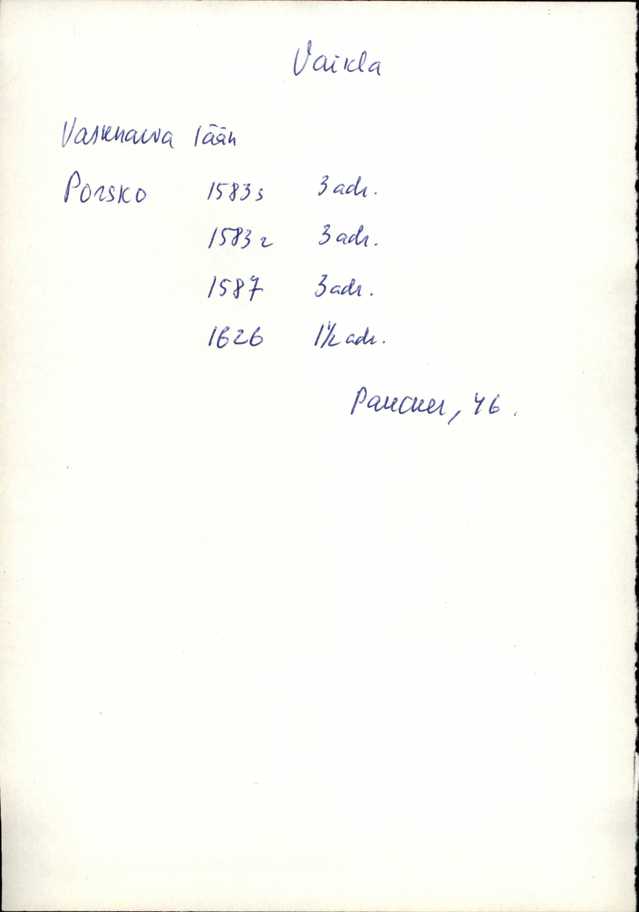 Vaikla
Vasknarva lään
Porsko 1583 s 3 adr.
1583 r 3 adr.
1587 3 adr.
1626 1½ adr.
Paucker, 46.